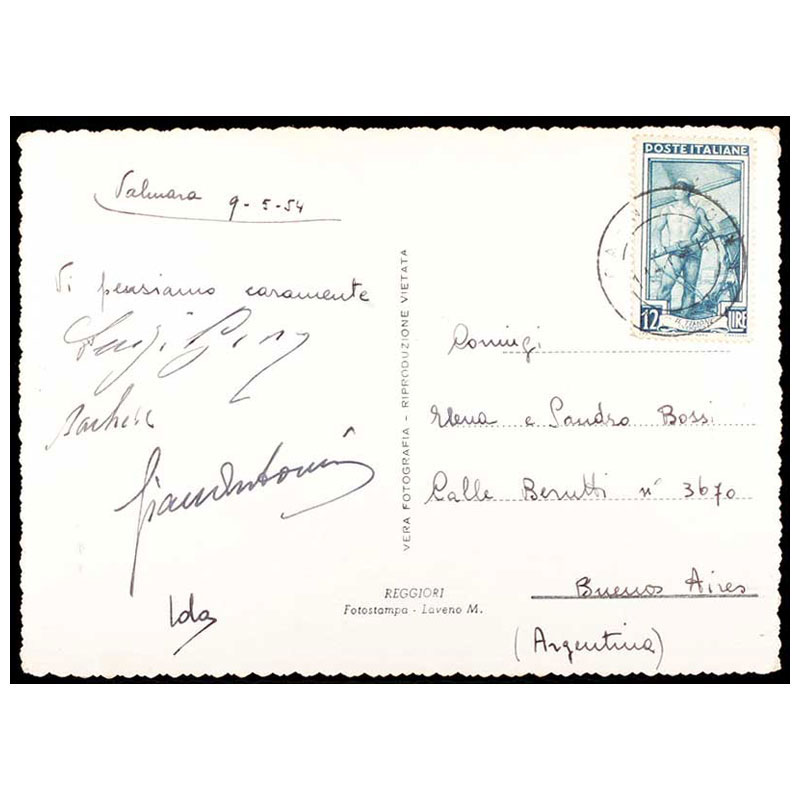 Valmara 9-5-54
Vi pensiamo caramente
Luigi
Gianantonio
Ida
VERA FOTOGRAFIA - RIPRODUZIONE VIETATA
REGGIORI
Fotostampa - Laveno M.
POSTE ITALIANE
12 LIRE
IL TIMONE
Coniugi
Elena e Sandro Bossi
Calle Berutti n° 3670
Buenos Aires
(Argentina)